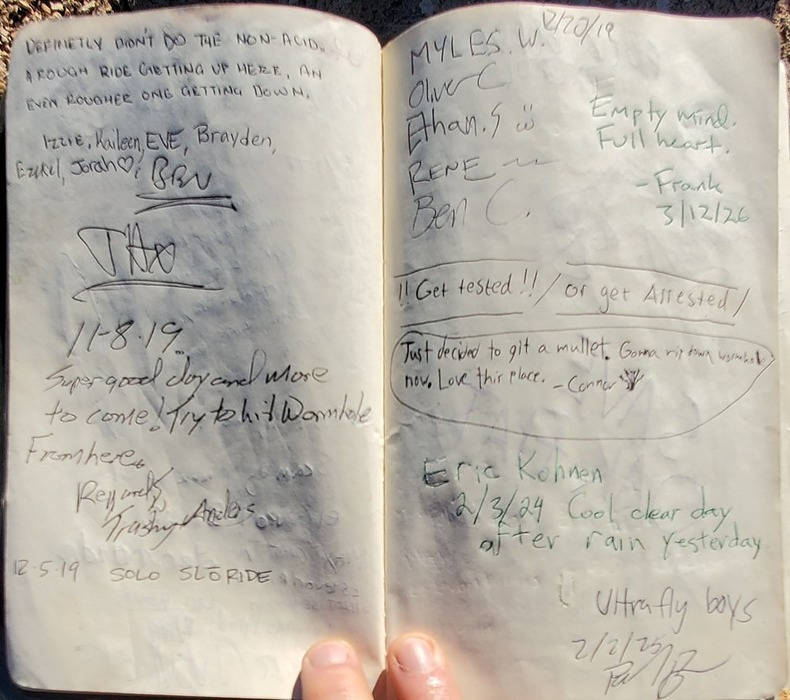 DEFINETLY DIDN'T DO THE NON-ACID.
A ROUGH RIDE GETTING UP HERE, AN
EVEN ROUGHER ONE GETTING DOWN.
IZZIE, Kaileen, EVE, Brayden,
Jorah♡,
11-8-19
Super good day and more
to come! Try to hit Wormhole
From here.
Regards
Trashy Anders
12·5·19 SOLO RIDE
12/20/19
MYLES. W.
Oliver C
Ethan.S
RENE
Ben C.
Empty mind.
Full heart.
-Frank
3/12/26
!! Get tested!! / or get Arrested /
Just decided to git a mullet. Gonna rip down wormhole
now. Love this place. -Connor
Eric Kohnen
2/3/24 Cool clear day
after rain yesterday
Ultrafly boys
2/2/25